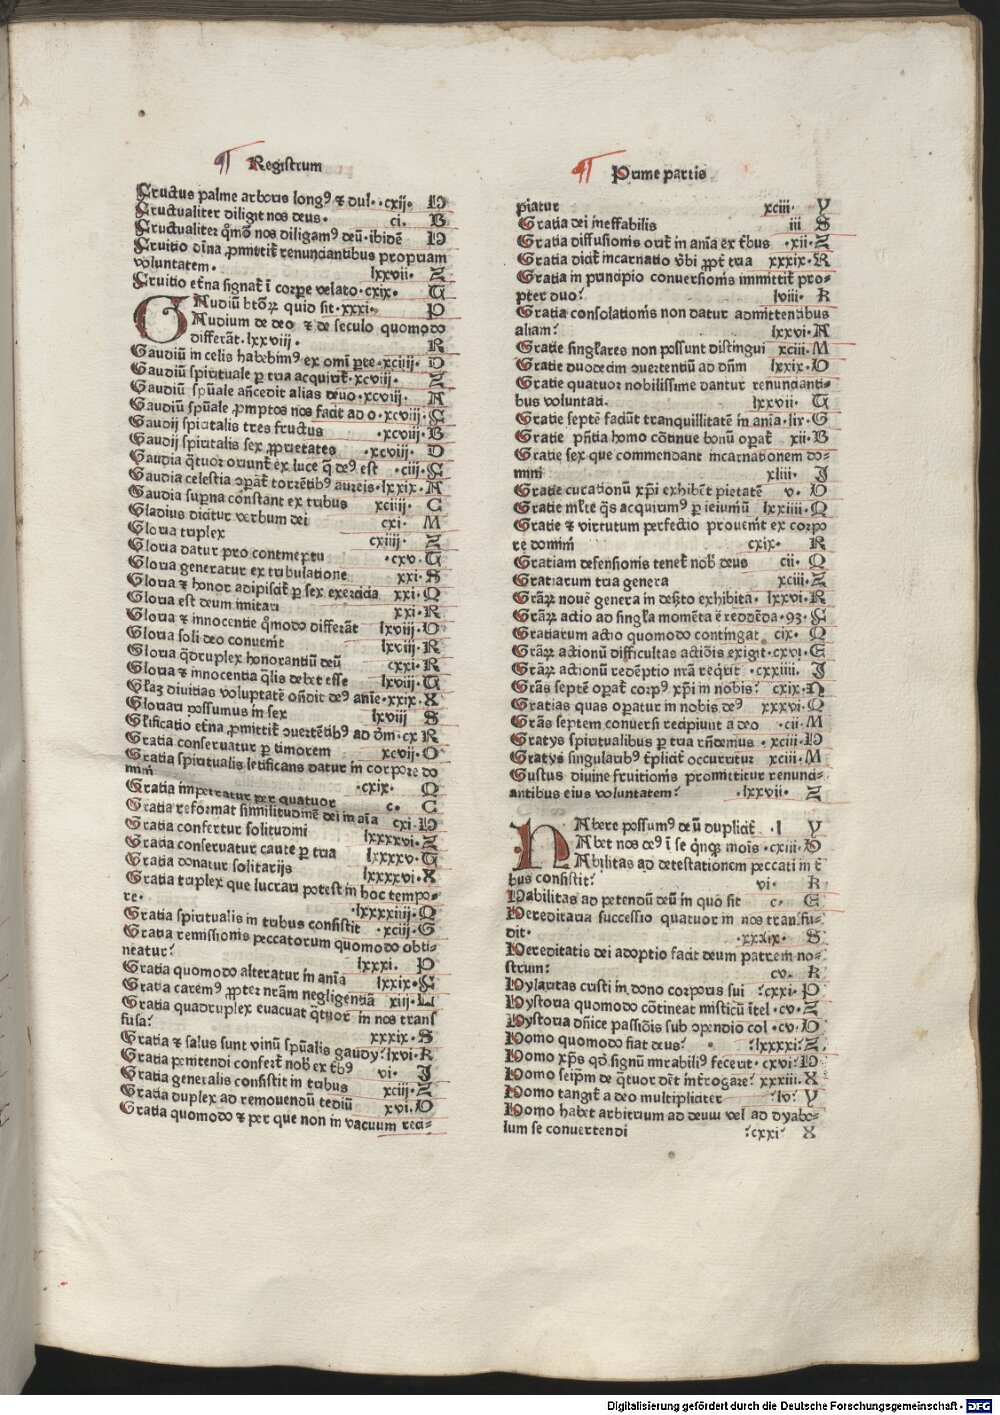 ¶ Registrum
Fructus palme arboris longꝰ ⁊ dul. · cxij. H
Fructualiter diligit nos deus. ci. B
Fructualiter qm̃o nos diligamꝰ deū · ibidē H
Fruitio dīna ꝓmittit̃ renunciantibus propriam
voluntatem. lxxvii. Z
Fruitio et̃na signat̃ ī corpe velato · cxix. G
GAudiū btōꝝ quid sit · xxxi. P
Audium de deo ⁊ de seculo quomodo
differāt · lxxviij. R
Gaudiū in celis habebimꝰ ex omī pte · xciiij. O
Gaudiū spirituale ꝑ tria acquirit̃ · xcviij. Z
Gaudiū spūale añcedit alias deuo · xcviij. A
Gaudiū spūale ꝓmptos nos facit ad o · xcviij. F
Gaudij spiritalis tres fructus · xcviij · B
Gaudij spiritalis sex ꝓprietates · xcviij. D
Gaudia q̃tuor oriunt̃ ex luce q̃ deꝰ est · ciij. F
Gaudia celestia oꝑat̃ torrētibꝰ aureis · lxxix. A
Gaudia superna constant ex tribus xciiij. C
Gladius dicitur verbum dei cxi. M
Gloria triplex cxiiij. Z
Gloria datur pro contmeptu · cxv. G
Gloria generatur ex tribulatione xxi. S
Gloria ⁊ honor adipiscit̃ ꝑ sex exercicia xxi. Q
Gloria est deum imitari xxi. R
Gloria ⁊ innocentie qm̃odo differāt lxviij. O
Gloria soli deo conuenit lxviij. R
Gloria q̃druplex honorantiū deū cxxi. R
Gloria ⁊ innocentia q̃lis debet esse lxviij. G
Gl̃az diuitias voluptatē oñdit deꝰ anīe · xxix. X
Gloriari possumus in sex lxviij S
Gl̃ificatio et̃na ꝓmittit̃ ↄuertētibꝰ ad dm̄ · cx R
Gratia conseruatur ꝑ timorem xcvij. O
Gratia spiritualis letificans datur in corpore do
mini · cxix. Q
Gratia impetratur per quatuor c. C
Gratia reformat similitudinē dei in aīa cxi. H
Gratia confertur solitudini lxxxxvi. Z
Gratia conseruatur caute ꝑ tria lxxxv. G
Gratia donatur solitarijs lxxxxvi. X
Gratia triplex que lucrari potest in hoc tempo-
re. · lxxxxiiij. Q
Gratia spiritualis in tribus consistit · xciij. G
Gratia remissionis peccatorum quomodo obti-
neatur? lxxxi. P
Gratia quomodo alteratur in anīa lxxix. F
Gratia caremꝰ ꝓpter nr̄am negligentiā xiij. L
Gratia quadruplex euacuat q̃tuor in nos trans
fusa? xxxix. S
Gratia ⁊ salus sunt vinū spūalis gaudij? lxvi. R
Gratia penitendi confert̃ nob̄ ex t̃bꝰ vi. J
Gratia generalis consistit in tribus xciij. Z
Gratia duplex ad remouendū tediū xvi. O
Gratia quomodo ⁊ per que non in vacuum reci-
¶ Prime partis
piatur xciii. Y
Gratia dei ineffabilis iii S
Gratia diffusionis orit̃ in anīa ex t̃bus · xii. Z
Gratia dicit̃ incarnatio v̄bi ꝓpt̃ tria xxxix. R
Gratia in principio conuersionis immittit̃ pro-
pter duo? lviii. R
Gratia consolationis non datur admittentibus
aliam? lxxvi. A
Gratie singl̃ares non possunt distingui xciii. M
Gratie duodecim ↄuertentiū ad dn̄m lxxix. O
Gratie quatuor nobilissime dantur renuncianti-
bus voluntati. lxxvii. G
Gratie septē faciūt tranquillitatē in anīa · lix. G
Gratie pñtia homo cōtinue bonū oꝑat̃ xii. B
Gratie sex que commendant incarnationem do-
mini xliii. J
Gratie curationū xp̄i exhibēt pietatē v. O
Gratie ml̃te q̄s acquirimꝰ ꝑ ieiuniū lxxiiii. Q
Gratie ⁊ virtutum perfectio prouenit ex corpo
re domini cxix. R
Gratiam defensionis tenet̃ nob̄ deus cii. Q
Gratiarum tria genera xciii. Z
Gr̄aꝝ nouē genera in deserto exhibita. lxxvi. R
Gr̄aꝝ actio ad singl̃a momēta ē reddēda · 93. F
Gratiarum actio quomodo contingat cix. Q
Gr̄aꝝ actionū difficultas actiōis exigit · cxvi. E
Gr̄aꝝ actionū redēptio nr̄a req̃rit · cxxiiii. J
Gr̄as septē oꝑat̃ corpꝰ xp̄i in nobis? cxix. N
Gratias quas oꝑatur in nobis deꝰ xxxvi. Q
Gr̄as septem conuersi recipiunt a deo · cii. M
Gratijs spiritualibus ꝑ tria rñdemus · xciii. H
Gratijs singularibꝰ t̃plicit̃ occurritur xciii. M
Gustus diuine fruitionis promittitur renunci-
antibus eius voluntatem? · lxxvii. Z
HAbere possumꝰ deū duplicit̃ · l Y
Abet nos deꝰ ī se q̃nqꝫ mōis · cxiii. O
Abilitas ad detestationem peccati in t̃
bus consistit? vi. R
Habilitas ad petendū deū in quo sit c. E
Hereditaria successio quatuor in nos transfu-
dit. · xxxix. S
Hereditatis dei adoptio facit deum patrem no-
strum? cv. R
Hylaritas cristi in dono corporis sui ? cxxi. P
Hystoria quomodo cōtineat misticū ītel · cv. Z
Hystoria dn̄ice passiōis sub ↄpendio col · cv. O
Homo quomodo fiat deus? ? lxxxxi? Z
Homo xp̄s qd̄ signū mirabiliꝰ fecerit · cxvi? H
Homo seip̄m de q̃tuor dꝫt int̃rogare? xxxiii. X
Homo tangit̃ a deo multipliciter ? lv? Y
Homo habet arbitrium ad deum vel ad dyabo-
lum se conuertendi ? cxxi? X
Digitalisierung gefördert durch die Deutsche Forschungsgemeinschaft - DFG